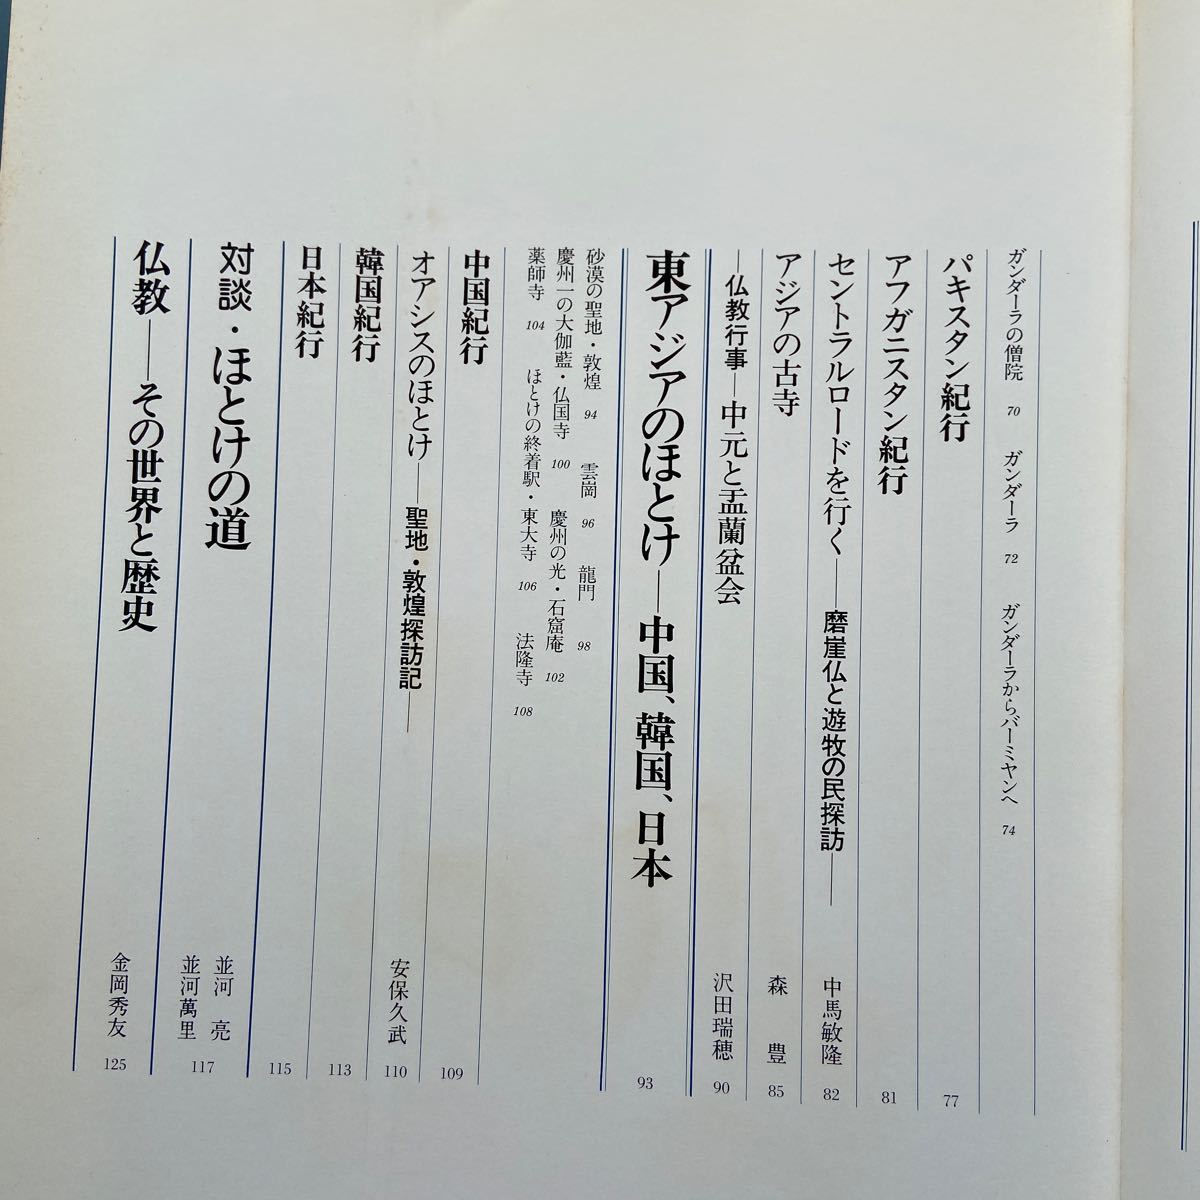 ガンダーラの僧院 70 ガンダーラ 72 ガンダーラからバーミヤンへ 74
パキスタン紀行 77
アフガニスタン紀行 81
セントラルロードを行く——磨崖仏と遊牧の民探訪—— 中馬敏隆 82
アジアの古寺 森 豊 85
—仏教行事—中元と盂蘭盆会 沢田瑞穂 90
東アジアのほとけ——中国、韓国、日本 93
砂漠の聖地・敦煌 94 雲崗 96 龍門 98
慶州一の大伽藍・仏国寺 100 慶州の光・石窟庵 102
薬師寺 104 ほとけの終着駅・東大寺 106 法隆寺 108
中国紀行 109
オアシスのほとけ——聖地・敦煌探訪記—— 安保久武 110
韓国紀行 113
日本紀行 115
対談・ほとけの道 並河 亮
並河萬里 117
仏教——その世界と歴史 金岡秀友 125